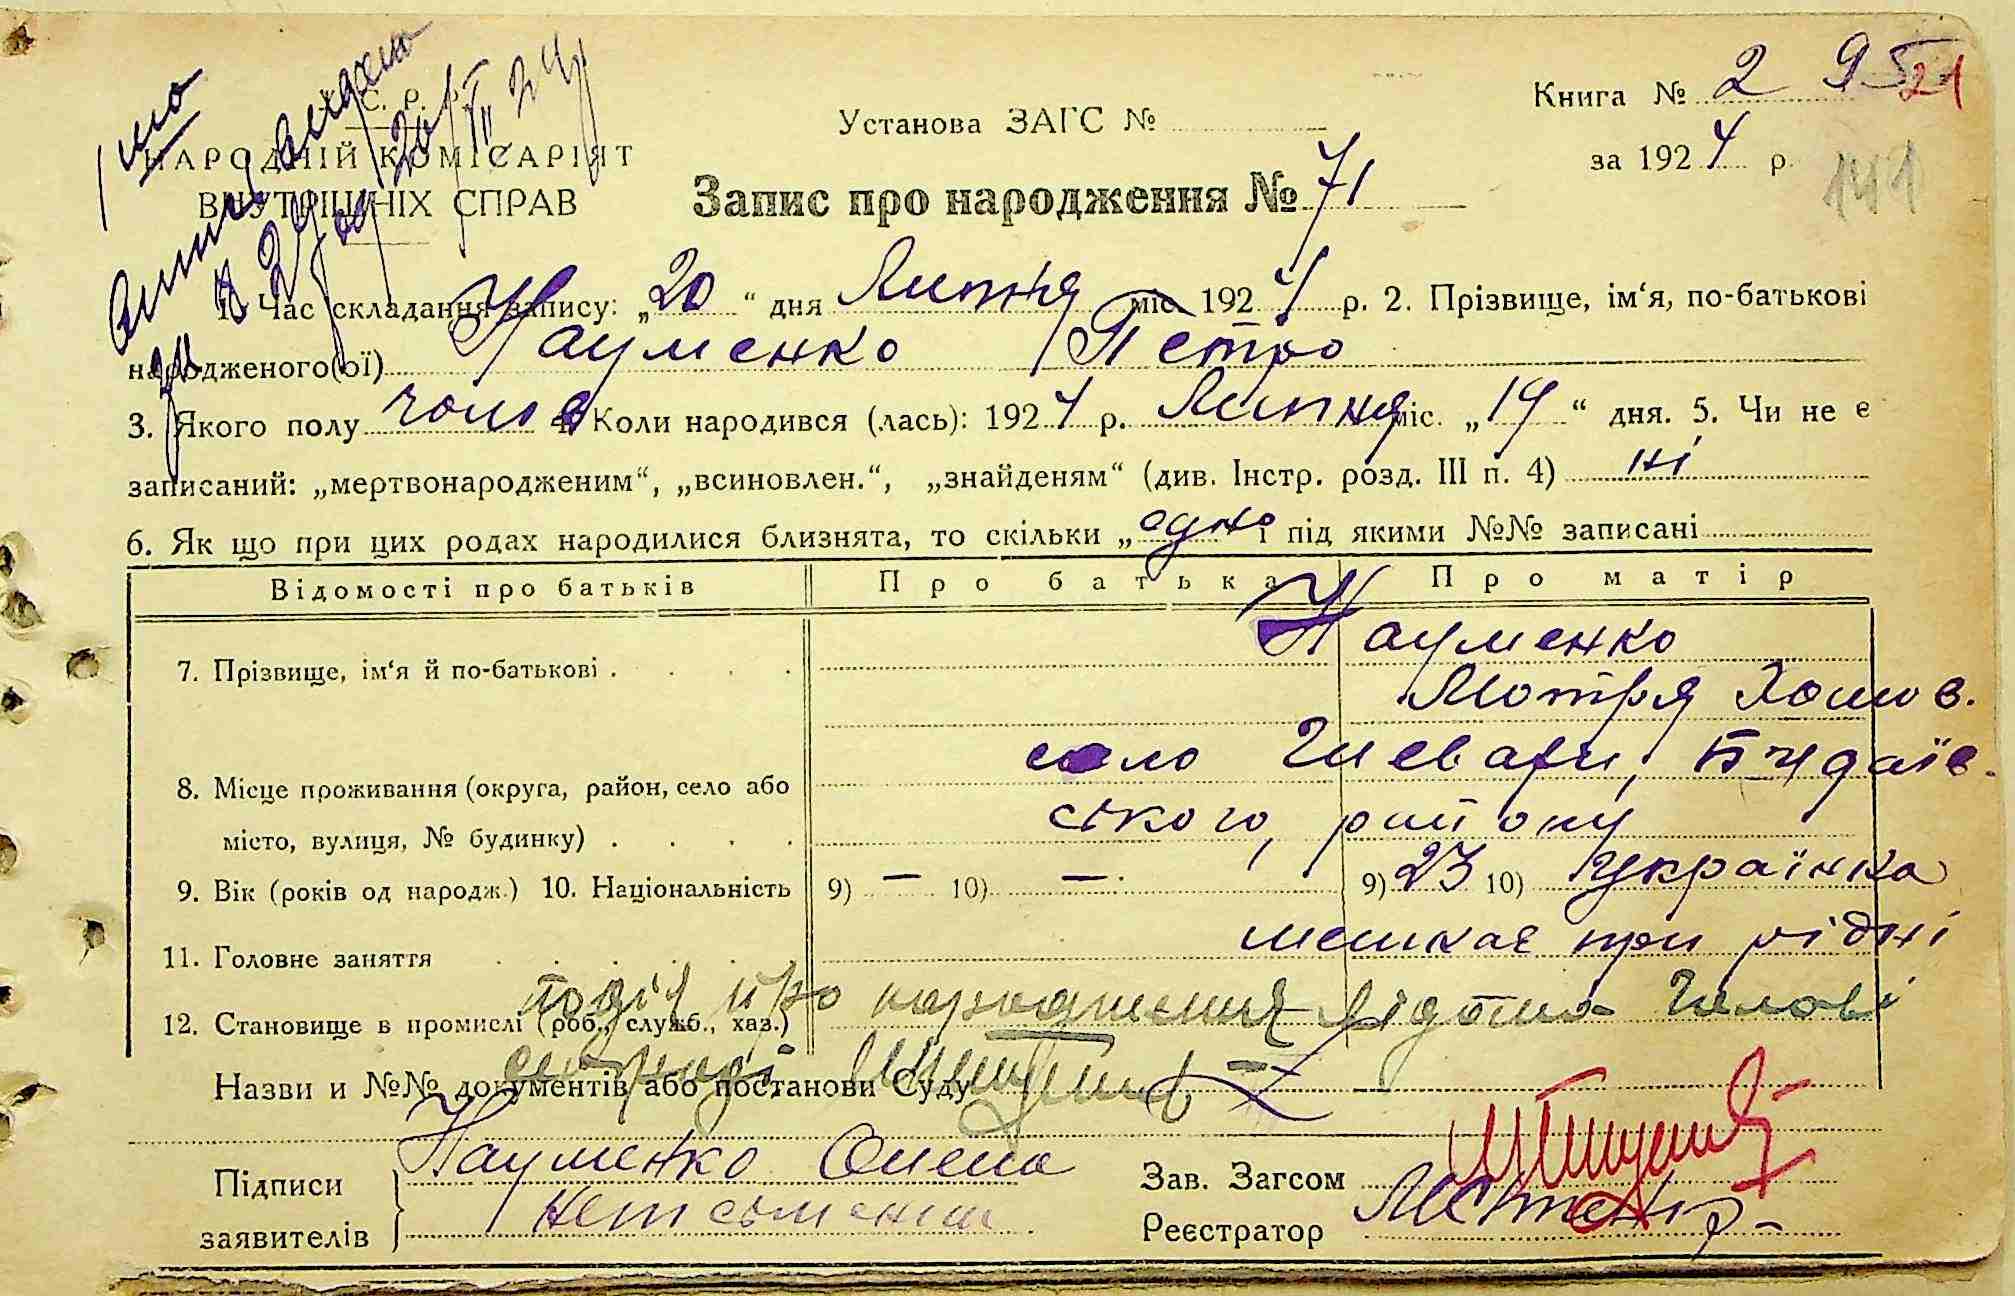 С. Р. Р.
НАРОДНІЙ КОМІСАРІЯТ
ВНУТРІШНІХ СПРАВ
Установа ЗАГС №
Книга № 2 9
21
за 1924 р.
141
Запис про народження № 71
1. Час складання запису: „20“ дня Липня міс. 1924 р. 2. Прізвище, ім‘я, по-батькові
народженого(ої) Науменко Петро
3. Якого полу чолов 4. Коли народився (лась): 1924 р. Липня міс. „19“ дня. 5. Чи не є
записаний: „мертвонародженим“, „всиновлен.“, „знайденям“ (див. Інстр. розд. III п. 4) ні
6. Як що при цих родах народилися близнята, то скільки „одно і під якими №№ записані
Відомості про батьків Про батька Про матір
7. Прізвище, ім‘я й по-батькові Науменко
Мотря Хомов.
8. Місце проживання (округа, район, село або село Будаїв-
місто, вулиця, № будинку) ського, району
9. Вік (років од народж.) 10. Національність 9) — 10) — 9) 23 10) Українка
11. Головне заняття мешкає при рідні
12. Становище в промислі (роб., служб., хаз.) подія про народження відома
Назви и №№ документів або постанови Суду
Підписи Науменко Олена
заявителів неписьменна
Зав. Загсом
Реєстратор